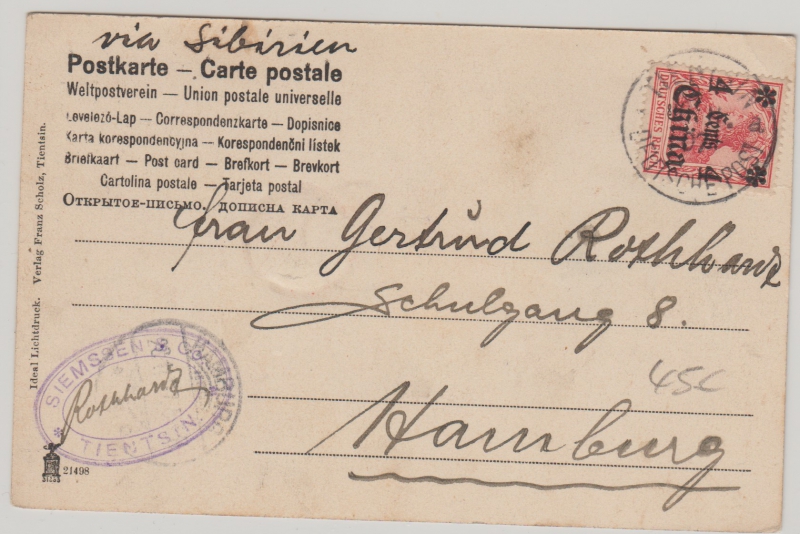 via Sibirien
Postkarte — Carte postale
Weltpostverein — Union postale universelle
Levelező-Lap — Correspondenzkarte — Dopisnice
Karta korespondencyjna — Korespondenční lístek
Briefkaart — Post card — Brefkort — Brevkort
Cartolina postale — Tarjeta postal
Открытое-письмо. дописна карта
4 Cents 4
China
DEUTSCHES REICH
DEUTSCHE POST
Frau Gertrud Rothhanz
Schulgang 8.
45c
Hamburg
Ideal Lichtdruck. Verlag Franz Scholz, Tientsin.
SIEMSSEN & CO
Rothhanz
* TIENTSIN *
21498